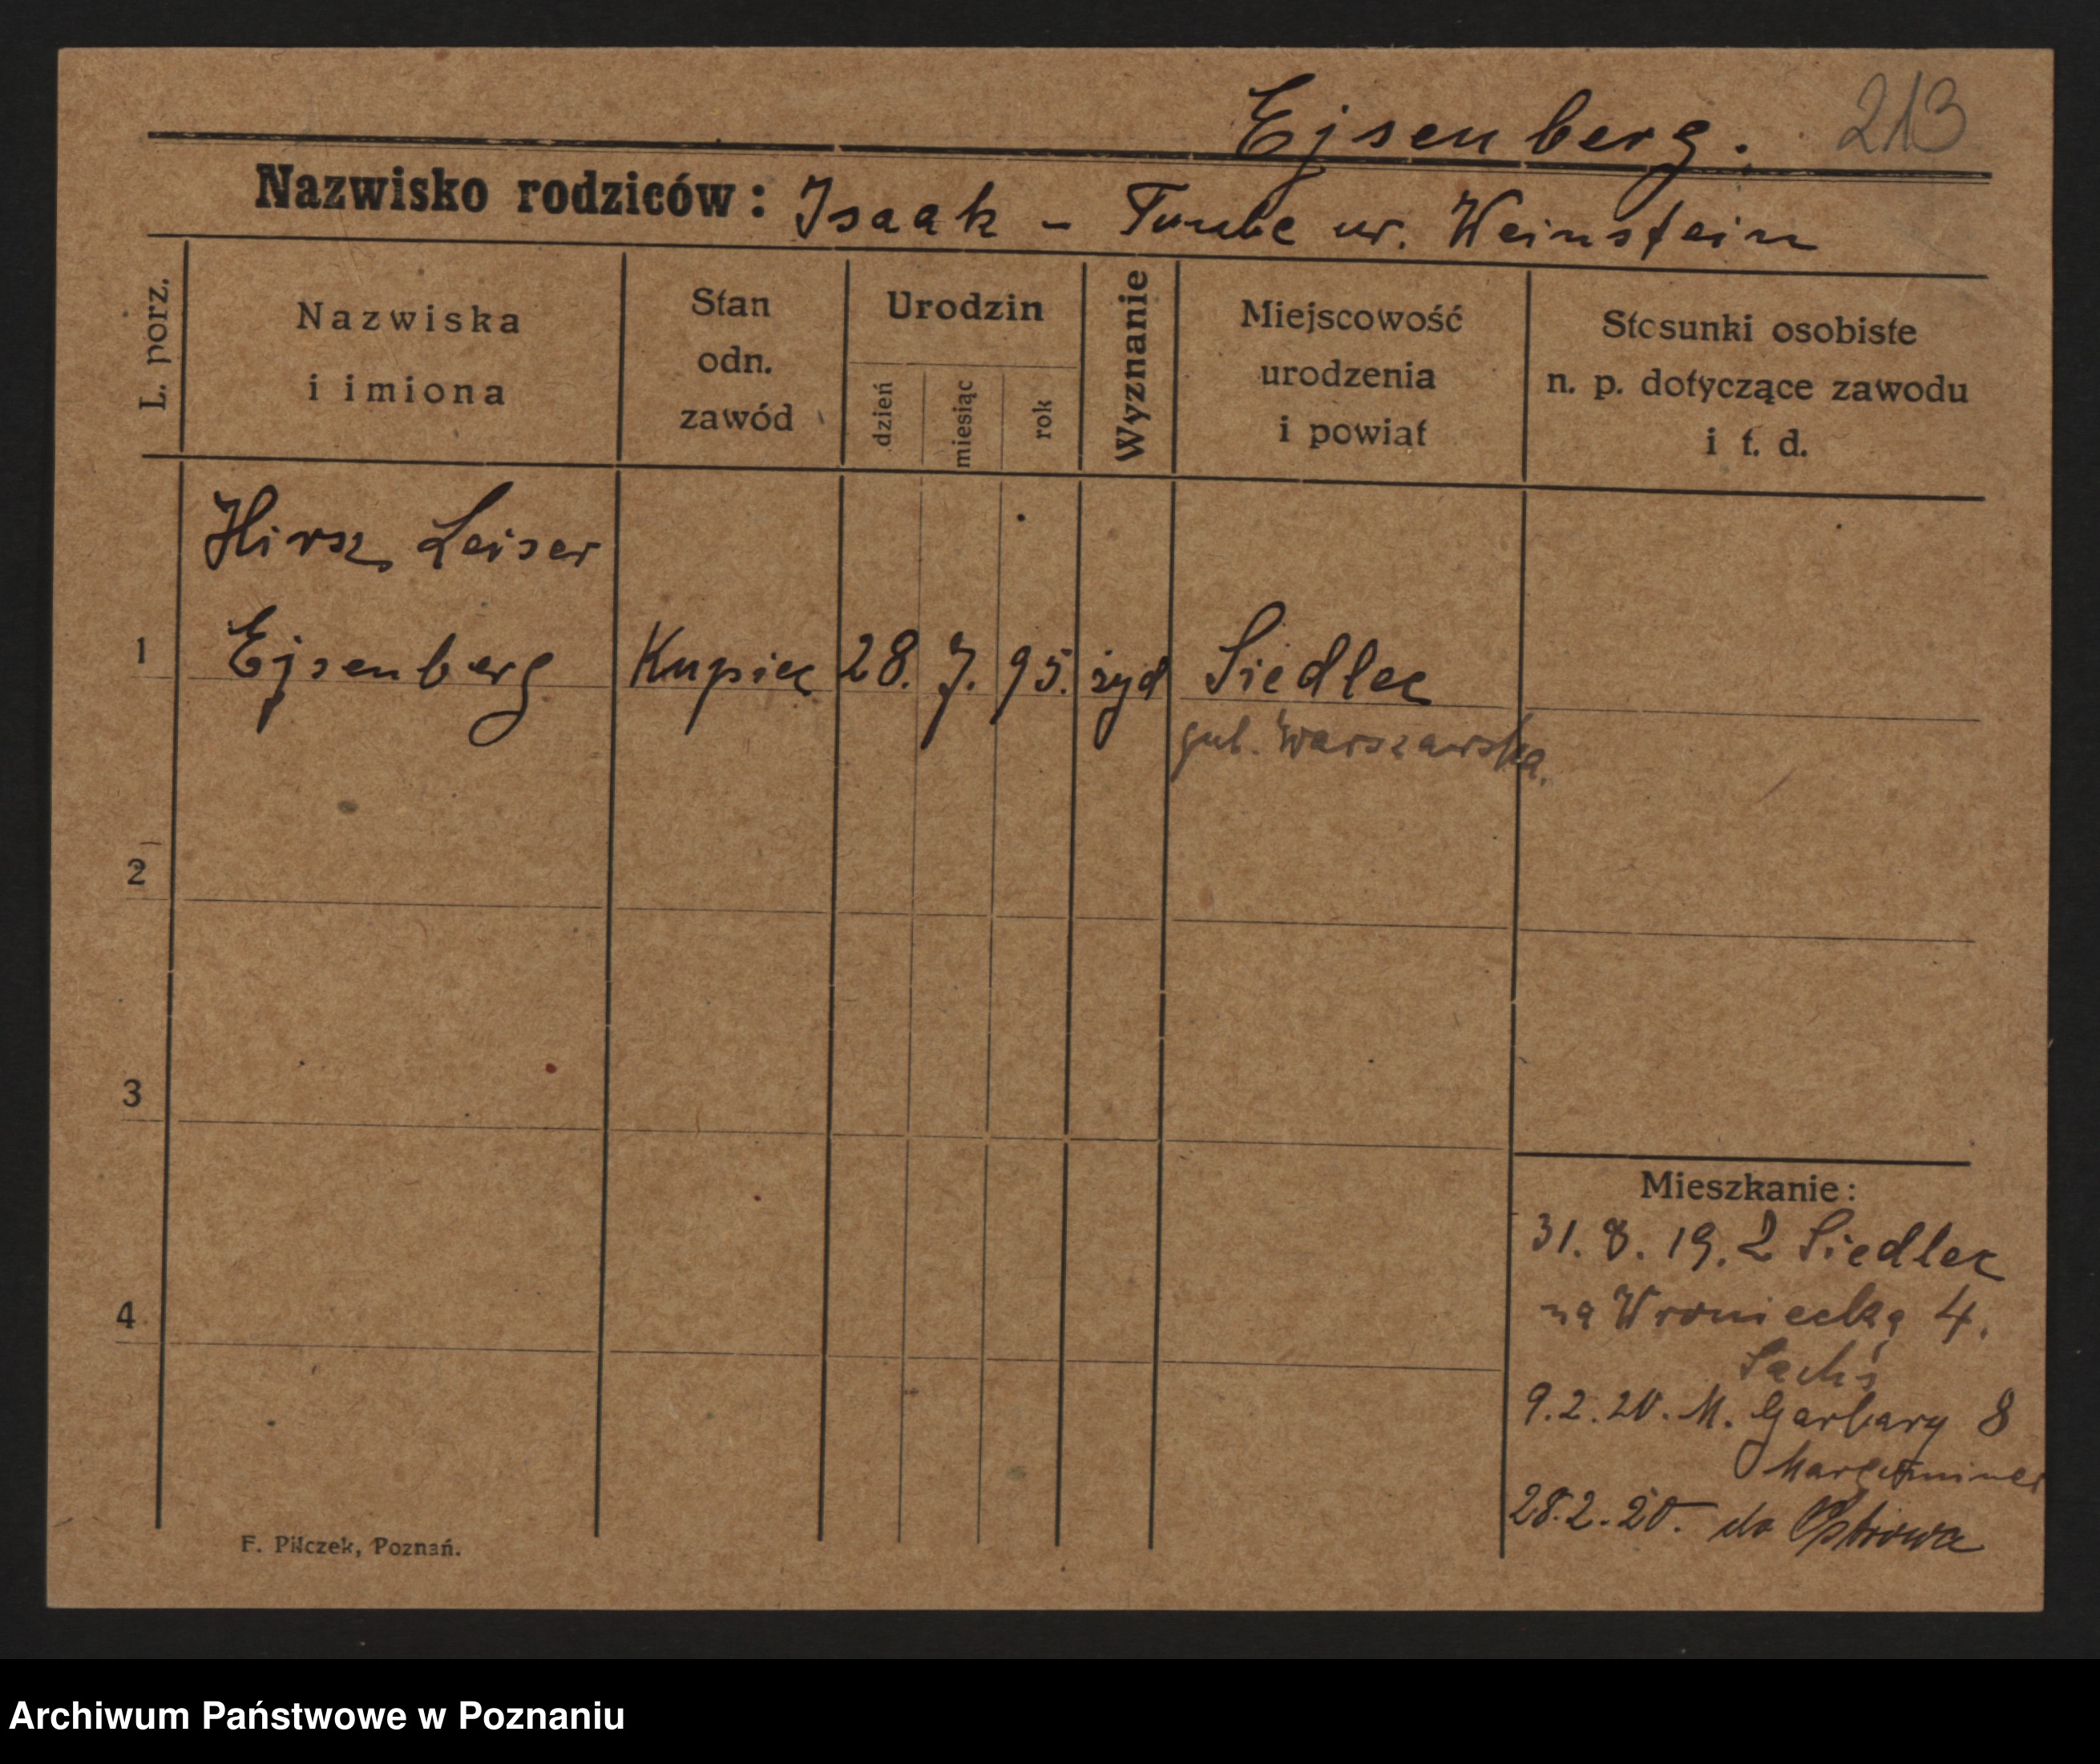 Ejsenberg. 213
Nazwisko rodziców: Isaak - Taube ur. Weinstein
L. porz.
Nazwiska
i imiona
Stan
odn.
zawód
Urodzin
dzień
miesiąc
rok
Wyznanie
Miejscowość
urodzenia
i powiat
Stosunki osobiste
n. p. dotyczące zawodu
i t. d.
Hirsz Leiser
1 Ejsenberg Kupiec 28. 7. 95. żyd Siedlec
gub. Warszawska.
2
3
4
Mieszkanie:
31. 8. 19. Z Siedlec
na Wroniecką 4.
Sachs
9. 2. 20. M. Garbary 8
28. 2. 20. do Ostrowa
F. Pilczek, Poznań.
Archiwum Państwowe w Poznaniu